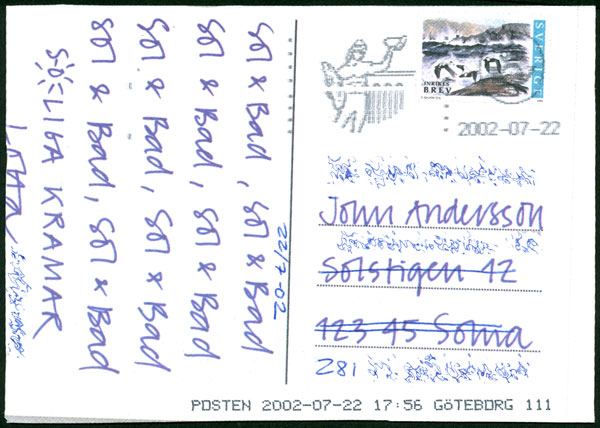 Sol & Bad, Sol & Bad
Sol & Bad, Sol & Bad
Sol & Bad, Sol & Bad
Sol & Bad, Sol & Bad
SOLIGA KRAMAR
22/7-02
SVERIGE
INRIKES
BREV
2002-07-22
John Andersson
Solstigen 42
123 45 Solna
281
POSTEN 2002-07-22 17:56 GÖTEBORG 111